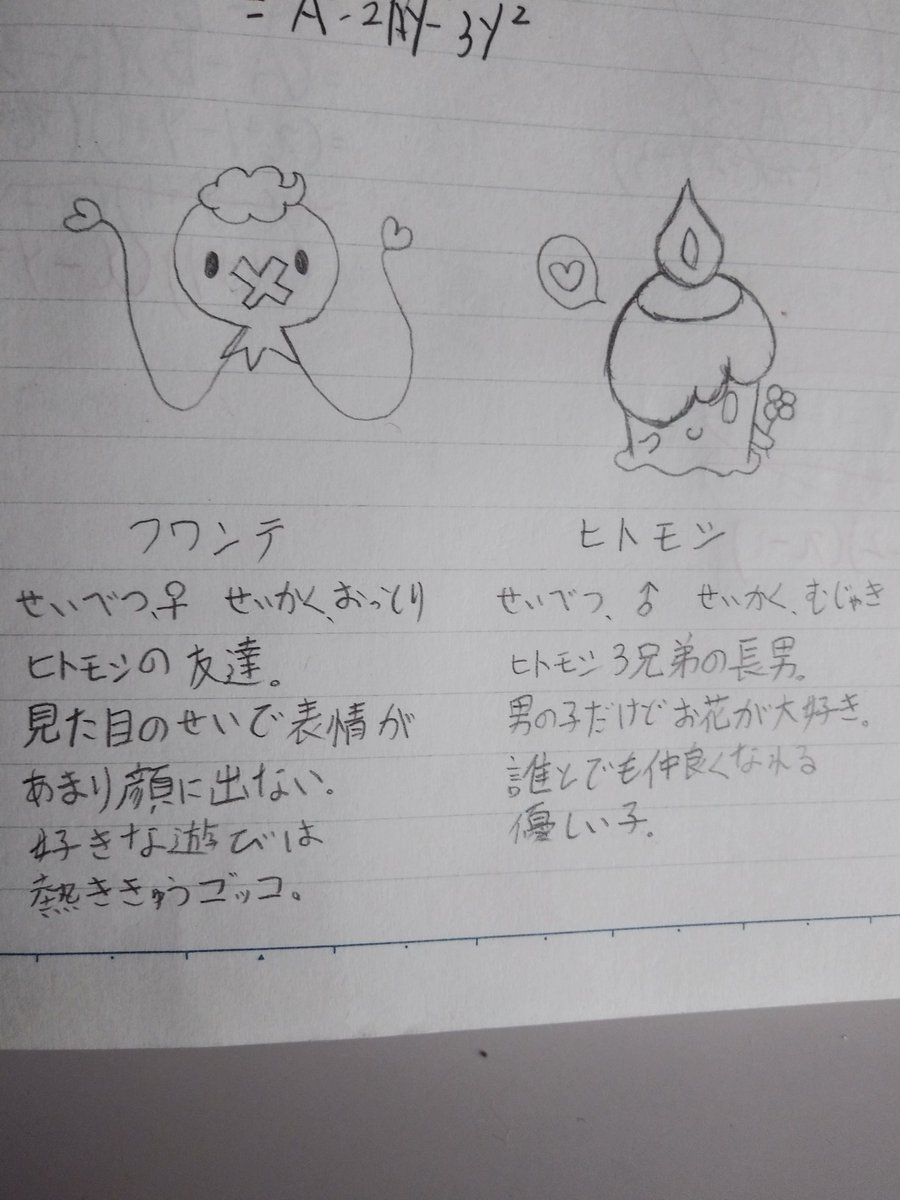 = A - 2AY - 3Y²
フワンテ
せいべつ、♀ せいかく、おっとり
ヒトモシの友達。
見た目のせいで表情が
あまり顔に出ない。
好きな遊びは
熱ききゅうゴッコ。
ヒトモシ
せいべつ、♂ せいかく、むじゃき
ヒトモシ3兄弟の長男。
男の子だけどお花が大好き。
誰とでも仲良くなれる
優しい子。